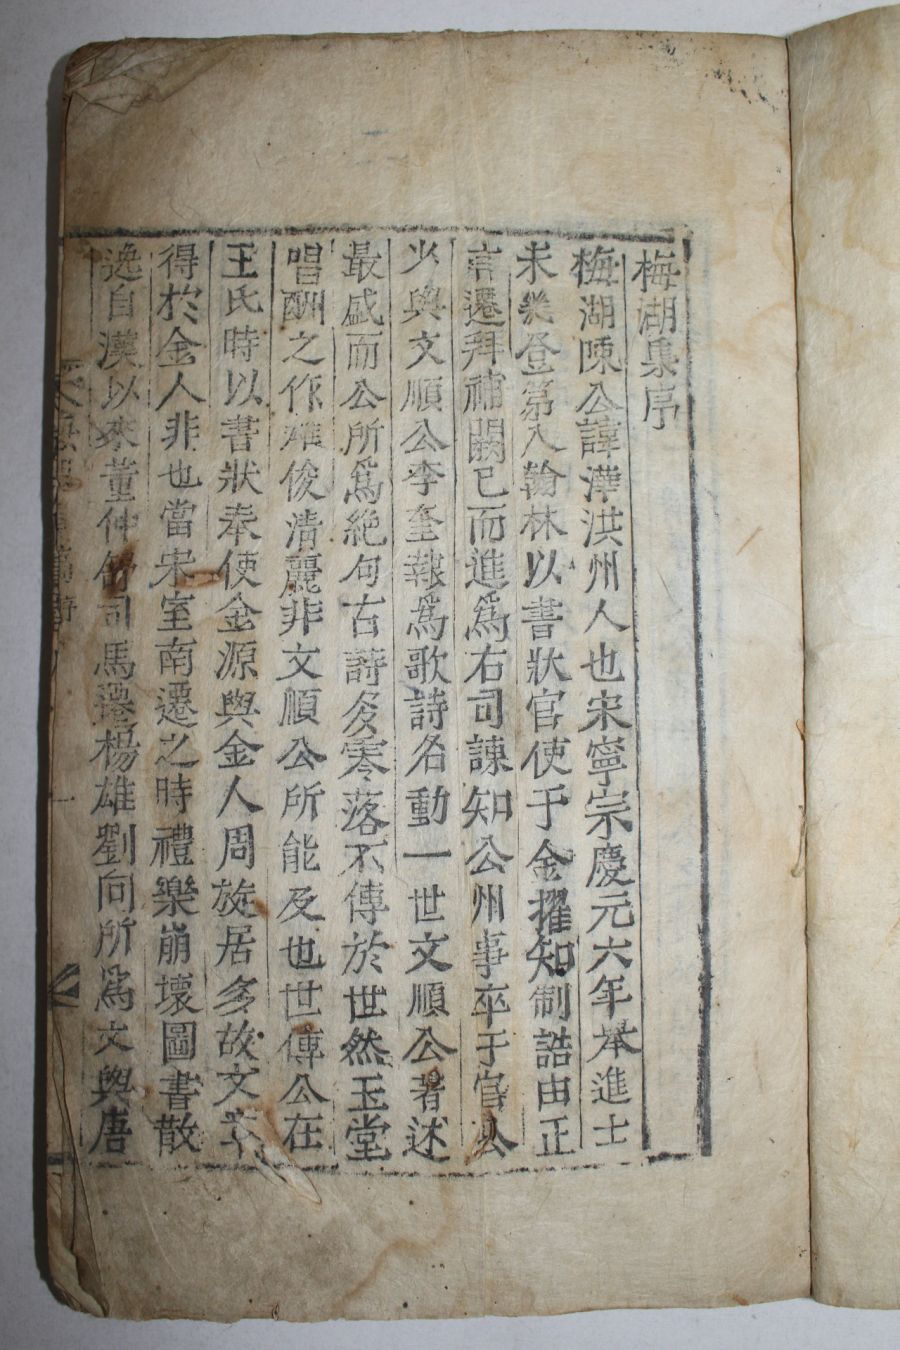 梅湖集序
梅湖陳公諱澕洪州人也宋寧宗慶元六年擧進士
未幾登第入翰林以書狀官使于金擢知制誥由正
言遷拜補闕已而進爲右司諫知公州事卒于官公
少與文順公李奎報爲歌詩名動一世文順公著述
最盛而公所爲絶句古詩多零落不傳於世然玉堂
唱酬之作雄俊淸麗非文順公所能及也世傳公在
王氏時以書狀奉使金源與金人周旋居多故文字
得於金人非也當宋室南遷之時禮樂崩壞圖書散
逸自漢以來董仲舒司馬遷楊雄劉向所爲文與唐